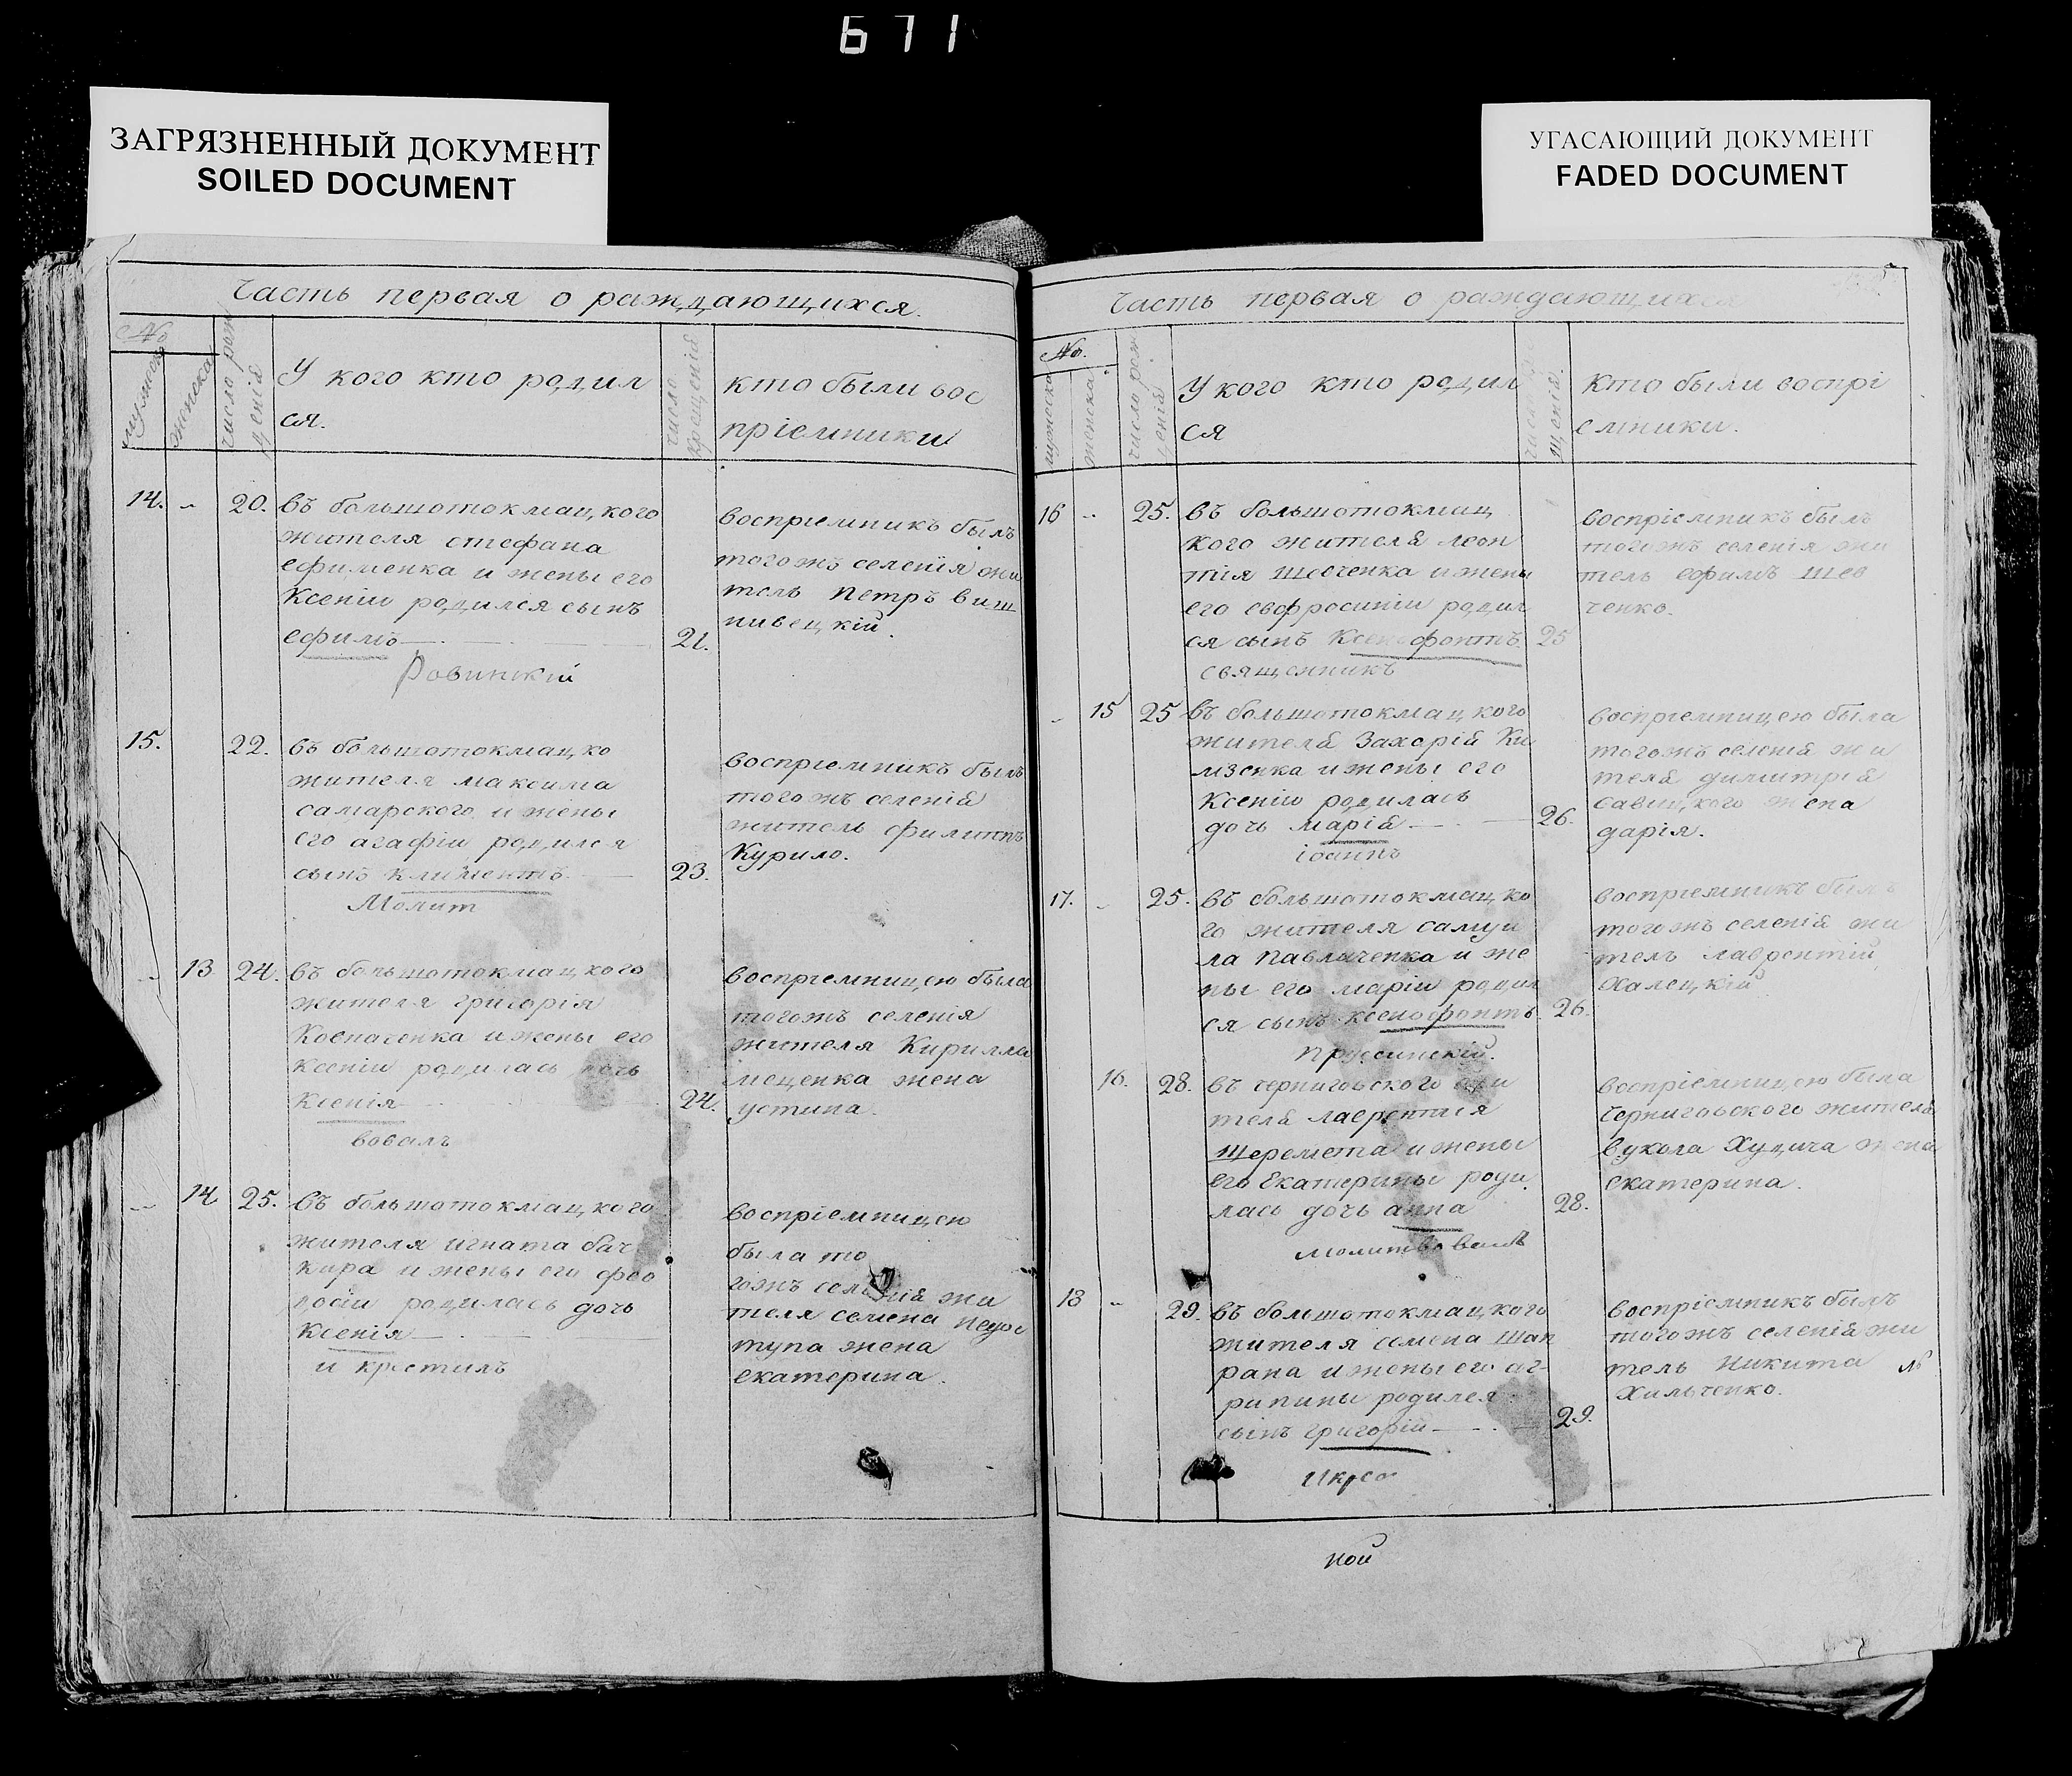 671
ЗАГРЯЗНЕННЫЙ ДОКУМЕНТ
SOILED DOCUMENT
УГАСАЮЩИЙ ДОКУМЕНТ
FADED DOCUMENT
Часть первая о раждающихся.
№
мужеска
женска
число рож
денія
У кого кто родил
ся.
число
крещенія
кто были вос
пріемники
14. 20. въ большотокмацкого
жителя стефана
ефименка и жены его
Ксеніи родился сынъ
ефимъ
21.
воспріемникъ былъ
тогожъ селенія жи
тель петръ виш
нивецкій.
Ровинскій
15. 22. въ большотокмацко
жителя максима
самарского и жены
его агафіи родился
сынъ климентъ
23.
воспріемникъ былъ
тогожъ селенія
житель филиппъ
Курило.
Молит
13 24. въ большотокмацкого
жителя григорія
и жены его
ксеніи родилась дочь
ксенія
24.
воспріемницею была
тогожъ селенія
жителя Кирилла
жена
устина.
вовалъ
14 25. въ большотокмацкого
жителя игната бач
кира и жены его фео
досіи родилась дочь
ксенія
воспріемницею
была то
гожъ селенія жи
теля семена недос
тупа жена
екатерина.
и крестилъ
Часть первая о раждающихся
№.
мужеска
женска
число рож
денія
У кого кто родил
ся
щенія.
Кто были воспрі
емники.
16 25. въ большотокмац
кого жителя леон
тія шевченка и жены
его евфросиніи родил
ся сынъ Ксенофонтъ.
25
воспріемникъ былъ
тогожъ селенія жи
тель ефимъ шев
ченко.
священникъ
15 25 въ большотокмацкого
жителя Захарія Ки
мзенка и жены его
Ксеніи родилась
дочь марія
26.
воспріемницею была
тогожъ селенія жи
теля димитрія
жена
дарія.
іоаннъ
17. 25. въ большотокмацко
го жителя самуи
ла павличенка и же
ны его маріи родил
ся сынъ ксенофонтъ.
26.
воспріемникъ былъ
тогожъ селенія жи
тель лаврентій
Халецкій
прусинскій.
16. 28. въ черниговского жи
теля лаврентія
шеремета и жены
его Екатерины роди
лась дочь анна
28.
воспріемницею была
черниговского жителя
вукола Худича жена
екатерина.
молитвовалъ
18 29. въ большотокмацкого
жителя семена шап
рана и жены его аг-
рипины родился
сынъ григорій
29.
воспріемникъ былъ
тогожъ селенія жи
тель никита
Хильченко.
и крес
ной